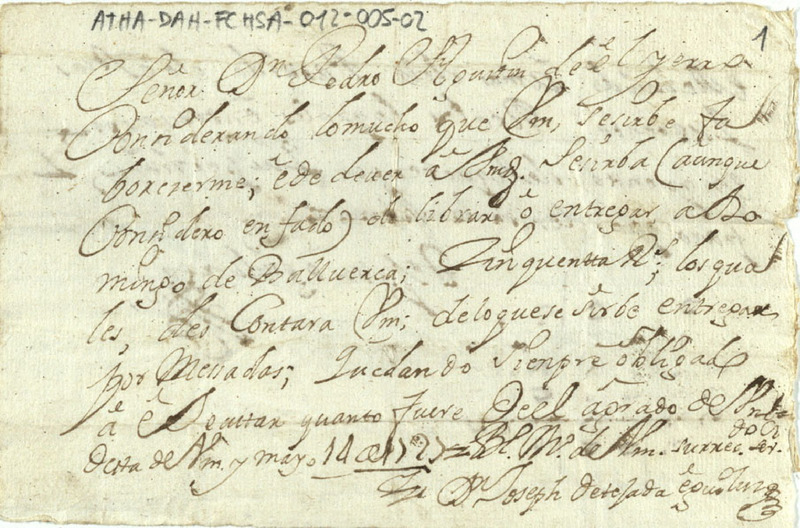 ATHA-DAH-FCHSA-012-005-02
1
Señor Dn Pedro Agustin de
Considerando lo mucho que Vm, se sirbe fa
borcerme; e de dever a Vmd. se sirba (aunque
Considero enfado) el librar o entregar a Do
mingo de Balluerca; Zinquentta Rs; los qua
les, des Contara Vm; de lo que se sirbe entregar
por Mesadas; quedando siempre obligado
a quanto fuere de el agrado de
de Vm. y mayo 14 de = BL. Mo. de Vm. su
Dn Joseph de tejada